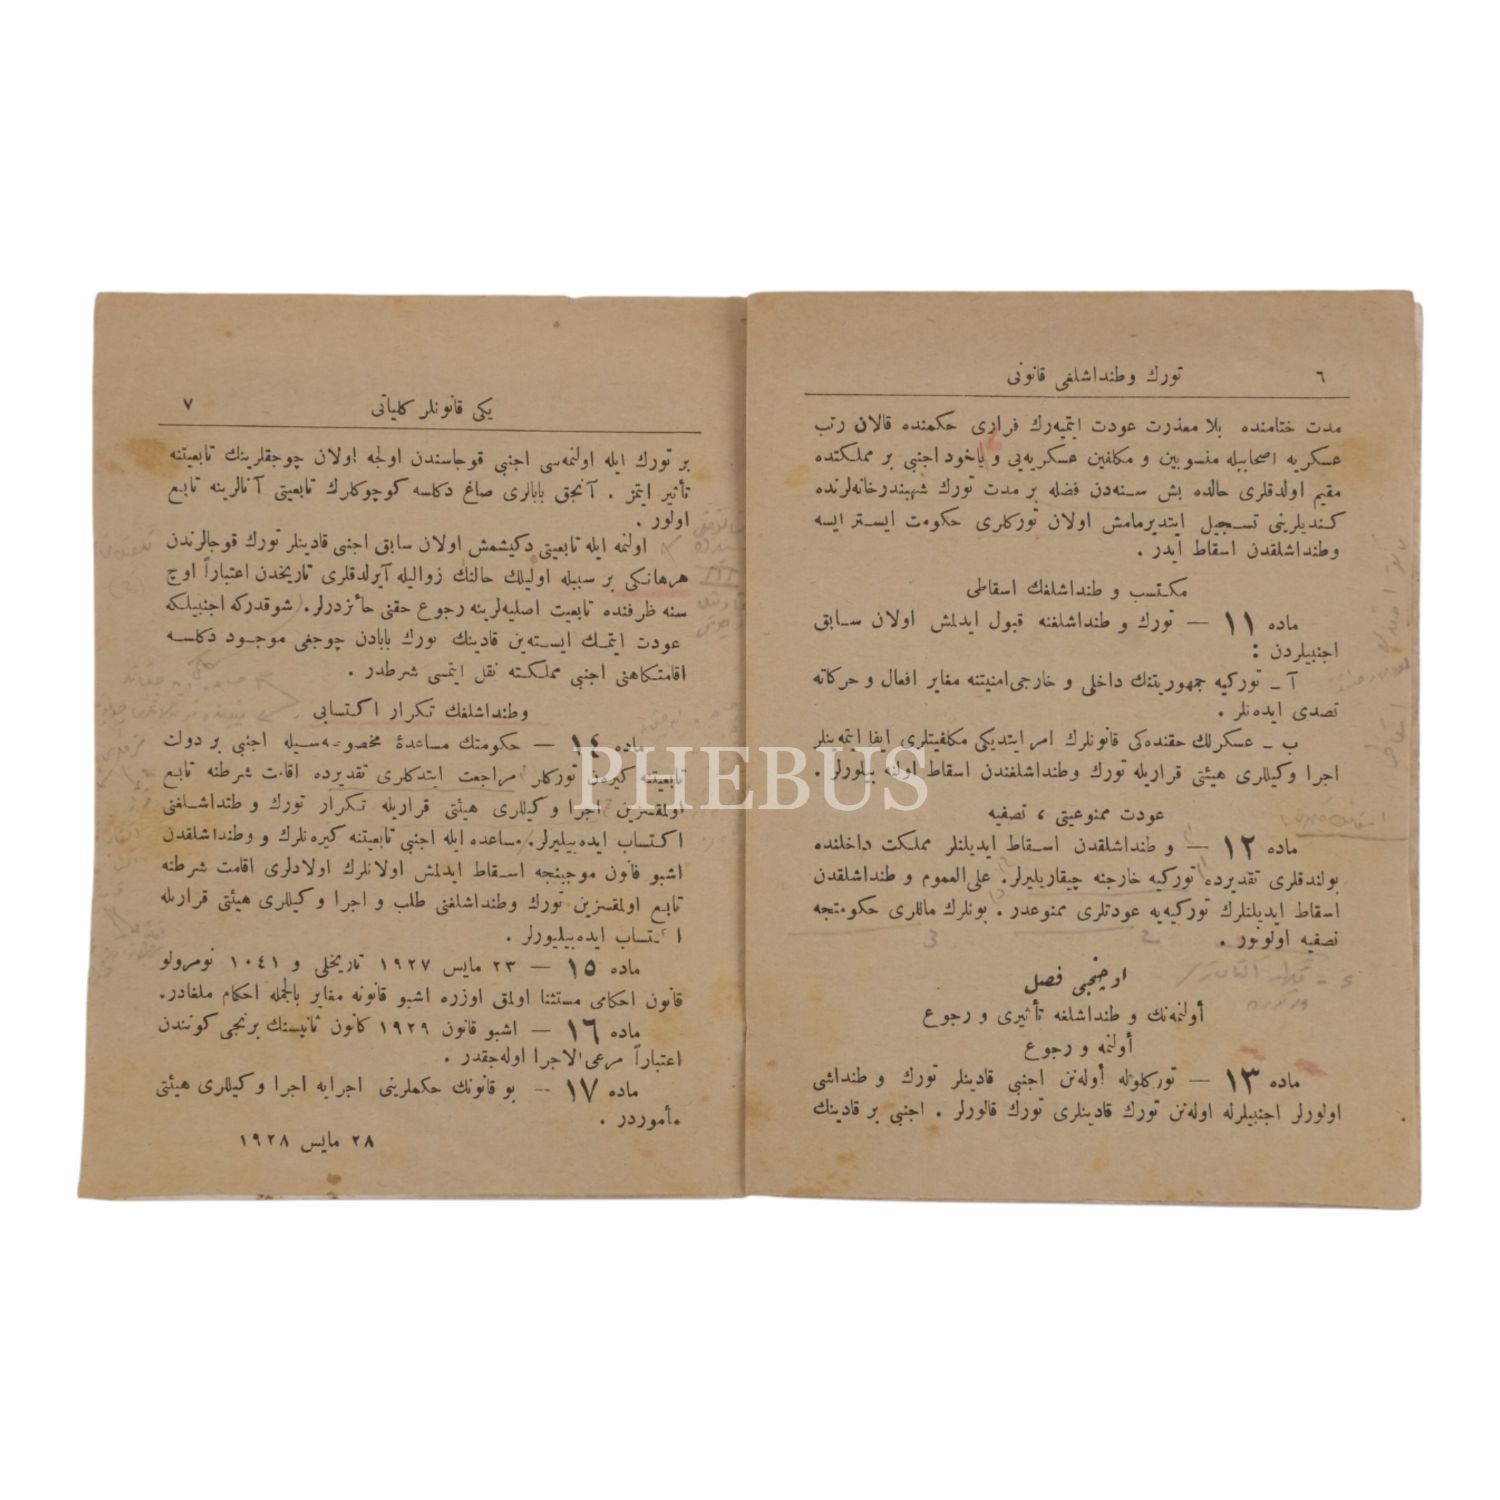 ٦
تورك وطنداشلغی قانونی
مدت ختامنده بلا معذرت عودت ایتمیه‌رك فراری حكمنده قالان رتب
عسكریه اصحابیله منسوبین و مكلفین عسكریه‌یی و یاخود اجنبی بر مملكتده
مقیم اولدقلری حالده بش سنه‌دن فضله بر مدت تورك شهبندرخانه‌لرنده
كندیلرینی تسجیل ایتدیرمامش اولان توركلری حكومت ایستر ایسه
وطنداشلقدن اسقاط ایدر .
مكتسب وطنداشلغك اسقاطی
ماده ١١ — تورك وطنداشلغنه قبول ایدلمش اولان سابق
اجنبیلردن :
آ — توركیه جمهوریتنك داخلی و خارجی امنیتنه مغایر افعال و حركاته
تصدی ایده‌نلر .
ب — عسكرلك حقنده‌كی قانونلرك امر ایتدیكی مكلفیتلری ایفا ایتمه‌ینلر
اجرا وكیللری هیئتی قراریله تورك وطنداشلغندن اسقاط اولنه بیلورلر .
عودت ممنوعیتی ، تصفیه
ماده ١٢ — وطنداشلقدن اسقاط ایدیلنلر مملكت داخلنده
بولندقلری تقدیرده توركیه خارجنه چیقاریلیرلر. علی‌العموم وطنداشلقدن
اسقاط ایدیلنلرك توركیه‌یه عودتلری ممنوعدر . بونلرك ماللری حكومتجه
تصفیه اولونور .
اوچنجی فصل
أولنمه‌نك وطنداشلغه تأثیری و رجوع
أولنمه و رجوع
ماده ١٣ — توركلرله أوله‌نن اجنبی قادینلر تورك وطنداشی
اولورلر اجنبیلرله اوله‌نن تورك قادینلری تورك قالورلر . اجنبی بر قادینك
یكی قانونلر كلیاتی
٧
بر تورك ایله اولنمه‌سی اجنبی قوجاسندن اولجه اولان چوجقلرینك تابعیتنه
تأثیر ایتمز . آنجق بابالری صاغ دكلسه كوچوكلرك تابعیتی آنالرینه تابع
اولور .
اولنمه ایله تابعیتی دكیشمش اولان سابق اجنبی قادینلر تورك قوجالرندن
هرهانكی بر سببله اولیلك حالنك زوالیله آیرلدقلری تاریخدن اعتباراً اوچ
سنه ظرفنده تابعیت اصلیه‌لرینه رجوع حقنی حائزدرلر. شوقدركه اجنبیلكه
عودت ایتمك ایسته‌ین قادینك تورك بابادن چوجغی موجود دكلسه
اقامتكاهنی اجنبی مملكته نقل ایتمسی شرطدر .
وطنداشلغك تكرار اكتسابی
ماده ١٤ — حكومتك مساعدهٔ مخصوصه‌سیله اجنبی بر دولت
تابعیتنه كیره‌ن توركلر مراجعت ایتدكلری تقدیرده اقامت شرطنه تابع
اولمقسزین اجرا وكیللری هیئتی قراریله تكرار تورك وطنداشلغنی
اكتساب ایده‌بیلیرلر. مساعده ایله اجنبی تابعیتنه كیره‌نلرك و وطنداشلقدن
اشبو قانون موجبنجه اسقاط ایدلمش اولانلرك اولادلری اقامت شرطنه
تابع اولمقسزین تورك وطنداشلغنی طلب و اجرا وكیللری هیئتی قراریله
اكتساب ایده‌بیلیورلر .
ماده ١٥ — ٢٣ مایس ١٩٢٧ تاریخلی و ١٠٤١ نومرولو
قانون احكامی مستثنا اولمق اوزره اشبو قانونه مغایر بالجمله احكام ملغادر.
ماده ١٦ — اشبو قانون ١٩٢٩ كانون ثانیسنك برنجی كوندن
اعتباراً مرعی الاجرا اوله‌جقدر .
ماده ١٧ — بو قانونك حكملرینی اجرایه اجرا وكیللری هیئتی
مأموردر .
٢٨ مایس ١٩٢٨
PHEBUS